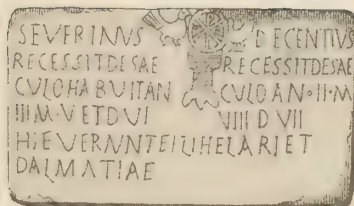 SEVERINVS DECENTIVS
RECESSITDESAE RECESSITDESAE
CVLOHABVITAN CVLOAN·II·M
IIII·M·V ETDVI VIII D VII
HIEVERVNTEILIHELARIET
DALMATIAE